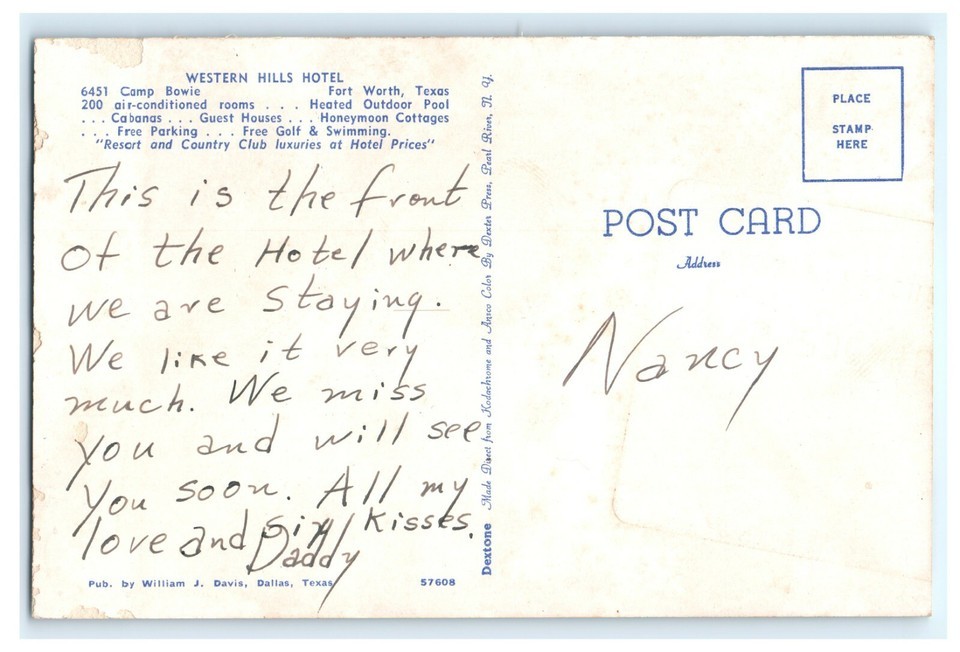 WESTERN HILLS HOTEL
6451 Camp Bowie Fort Worth, Texas
200 air-conditioned rooms . . . Heated Outdoor Pool
. . . Cabanas . . . Guest Houses . . . Honeymoon Cottages
. . . Free Parking . . . Free Golf & Swimming.
"Resort and Country Club luxuries at Hotel Prices"
This is the front
of the Hotel where
we are staying.
We like it very
much. We miss
you and will see
you soon. All my
love and six kisses.
Daddy
Pub. by William J. Davis, Dallas, Texas 57608
Dextone Made Direct from Kodachrome and Ansco Color By Dexter Press, Pearl River, N. Y.
PLACE
STAMP
HERE
POST CARD
Address
Nancy